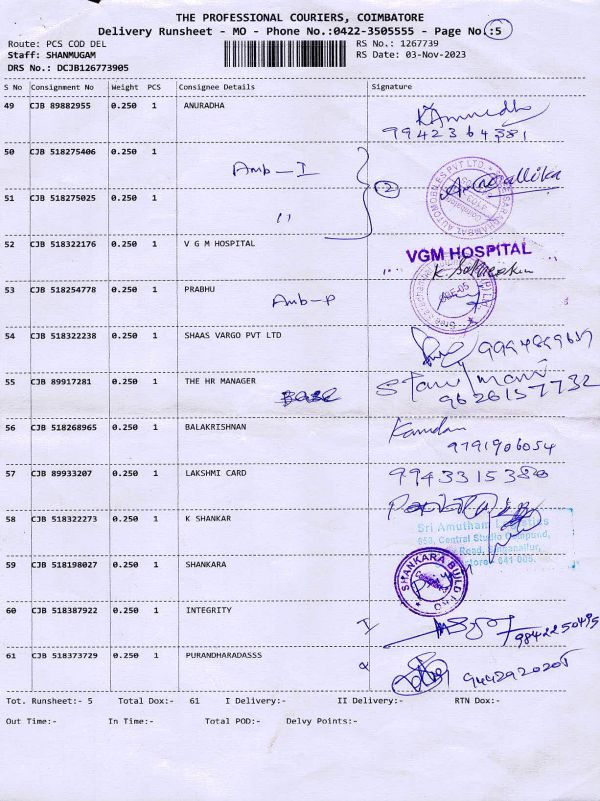 THE PROFESSIONAL COURIERS, COIMBATORE
Delivery Runsheet - MO - Phone No.:0422-3505555 - Page No.:5
Route: PCS COD DEL RS No.: 1267739
Staff: SHANMUGAM RS Date: 03-Nov-2023
DRS No.: DCJB126773905
S No Consignment No Weight PCS Consignee Details Signature
49 CJB 89882955 0.250 1 ANURADHA
9942364381
50 CJB 518275406 0.250 1
Amb-I
2
51 CJB 518275025 0.250 1
"
52 CJB 518322176 0.250 1 V G M HOSPITAL
VGM HOSPITAL
53 CJB 518254778 0.250 1 PRABHU
Amb-P
54 CJB 518322238 0.250 1 SHAAS VARGO PVT LTD
55 CJB 89917281 0.250 1 THE HR MANAGER
9626157732
56 CJB 518268965 0.250 1 BALAKRISHNAN
9791906054
57 CJB 89933207 0.250 1 LAKSHMI CARD
9943315380
58 CJB 518322273 0.250 1 K SHANKAR
Sri Amutham Logistics
Central Studio Compund,
Road, Singanallur,
641 005.
59 CJB 518198027 0.250 1 SHANKARA
SHANKARA BUILD PRO
60 CJB 518387922 0.250 1 INTEGRITY
9842250495
61 CJB 518373729 0.250 1 PURANDHARADASSS
Tot. Runsheet:- 5 Total Dox:- 61 I Delivery:- II Delivery:- RTN Dox:-
Out Time:- In Time:- Total POD:- Delvy Points:-